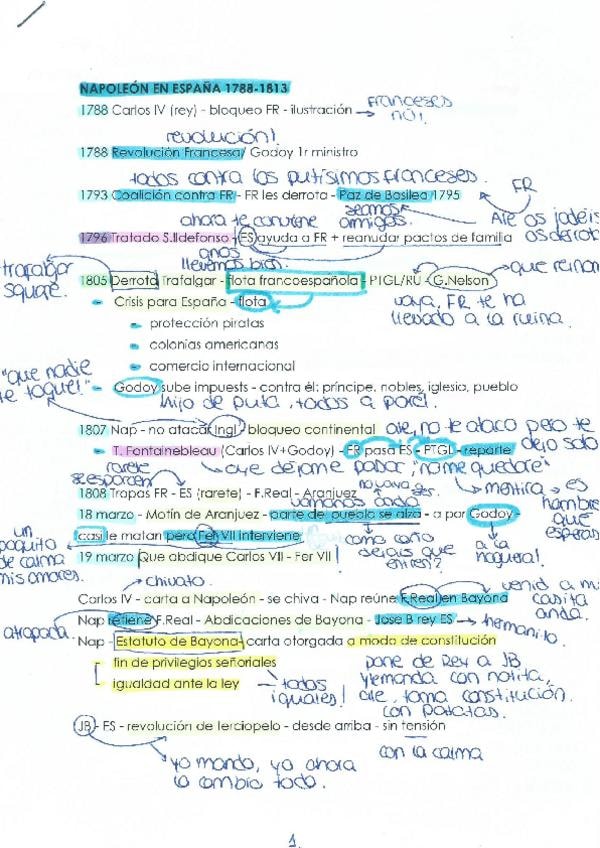 NAPOLEÓN EN ESPAÑA 1788-1813
1788 Carlos IV (rey) - bloqueo FR - ilustración → Franceses NO!
revolución!
1788 Revolución Francesa/ Godoy 1r ministro
todos contra los putísimos franceses.
1793 Coalición contra FR - FR les derrota - Paz de Basilea 1795
FR
ahora te conviene seamos amigos.
os derrota
1796 Tratado S.Ildefonso - ES ayuda a FR + reanudar pactos de familia
trafalgar square.
anos llevemos bien.
que reinona
1805 Derrota Trafalgar - flota francoespañola - PTGL/RU - G.Nelson
vaya, FR te ha llevado a la ruina.
Crisis para España - flota
protección piratas
colonias americanas
comercio internacional
"que nadie te toque!"
Godoy sube impuests - contra él: príncipe, nobles, iglesia, pueblo
hijo de puta, todos a por él.
1807 Nap - no atacar Ingl - bloqueo continental
aïe, no te ataco pero te dejo solo
T. Fontainebleau (Carlos IV+Godoy) - FR pasa ES - PTGL - reparte
rarete
aye déjame pasar, "no me quedaré"
mentira → es hombre que esperas
1808 Tropas FR - ES (rarete) - F.Real - Aranjuez
18 marzo - Motín de Aranjuez - parte de pueblo se alza - a por Godoy -
casi le matan pero Fer VII interviene
un poquito de calma mis amores.
como coño dejais que entren?
a la hoguera!
19 marzo Que abdique Carlos VII - Fer VII
chivato.
venid a mi casita anda.
Carlos IV - carta a Napoleón - se chiva - Nap reúne F.Real en Bayona
atrapada.
Nap retiene F.Real - Abdicaciones de Bayona - Jose B rey ES → hermanito.
Nap - Estatuto de Bayona - carta otorgada a modo de constitución
fin de privilegios señoriales
igualdad ante la ley
todos iguales!
pone de Rey a JB y le manda con notita, aïe toma constitución con patatas.
JB - ES - revolución de terciopelo - desde arriba - sin tensión
con la calma
yo mando, yo ahora lo cambio todo.
1